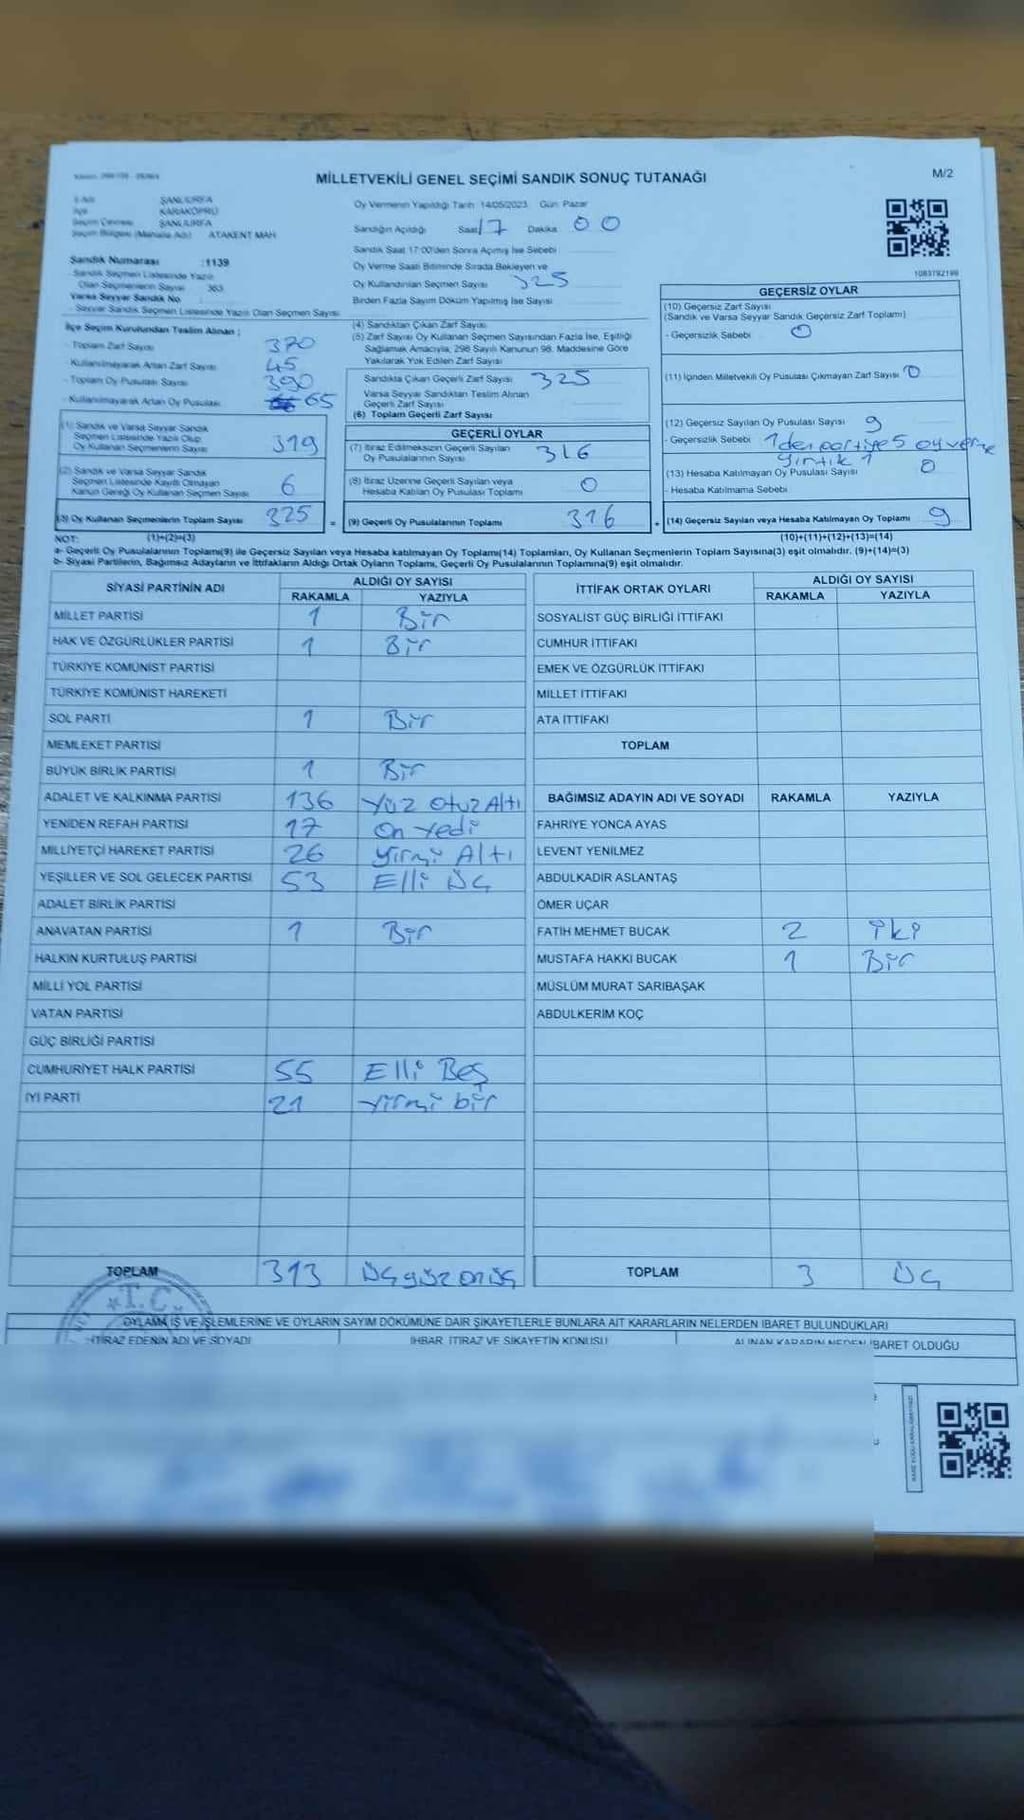 MİLLETVEKİLİ GENEL SEÇİMİ SANDIK SONUÇ TUTANAĞI
M/2
İli ŞANLIURFA
İlçe KARAKÖPRÜ
Seçim Çevresi ŞANLIURFA
Seçim Bölgesi (Mahalle Adı) ATAKENT MAH
Sandık Numarası :1139
Sandık Seçmen Listesinde Yazılı
Olan Seçmenlerin Sayısı 363
Varsa Seyyar Sandık No
Seyyar Sandık Seçmen Listesinde Yazılı Olan Seçmen Sayısı
Oy Vermenin Yapıldığı Tarih 14/05/2023 Gün Pazar
Sandığın Açıldığı Saat 17 Dakika 00
Sandık Saat 17:00'den Sonra Açımış İse Sebebi
Oy Verme Saati Bitiminde Sırada Bekleyen ve
Oy Kullandırılan Seçmen Sayısı 325
Birden Fazla Sayım Döküm Yapılmış İse Sayısı
1083792198
İlçe Seçim Kurulundan Teslim Alınan ;
- Toplam Zarf Sayısı 370
- Kullanılmayarak Artan Zarf Sayısı 45
- Toplam Oy Pusulası Sayısı 390
- Kullanılmayarak Artan Oy Pusulası 65
(1) Sandık ve Varsa Seyyar Sandık
Seçmen Listesinde Yazılı Olup
Oy Kullanan Seçmenlerin Sayısı 319
(2) Sandık ve Varsa Seyyar Sandık
Seçmen Listesinde Kayıtlı Olmayan
Kanun Gereği Oy Kullanan Seçmen Sayısı 6
(3) Oy Kullanan Seçmenlerin Toplam Sayısı 325
(4) Sandıktan Çıkan Zarf Sayısı
(5) Zarf Sayısı Oy Kullanan Seçmen Sayısından Fazla İse, Eşitliği
Sağlamak Amacıyla, 298 Sayılı Kanunun 98. Maddesine Göre
Yakılarak Yok Edilen Zarf Sayısı
Sandıkta Çıkan Geçerli Zarf Sayısı 325
Varsa Seyyar Sandıktan Teslim Alınan
Geçerli Zarf Sayısı
(6) Toplam Geçerli Zarf Sayısı
GEÇERLİ OYLAR
(7) İtiraz Edilmeksizin Geçerli Sayılan
Oy Pusulalarının Sayısı 316
(8) İtiraz Üzerine Geçerli Sayılan veya
Hesaba Katılan Oy Pusulası Toplamı 0
= (9) Geçerli Oy Pusulalarının Toplamı 316
GEÇERSİZ OYLAR
(10) Geçersiz Zarf Sayısı
(Sandık ve Varsa Seyyar Sandık Geçersiz Zarf Toplamı)
- Geçersizlik Sebebi 0
(11) İçinden Milletvekili Oy Pusulası Çıkmayan Zarf Sayısı 0
(12) Geçersiz Sayılan Oy Pusulası Sayısı 9
- Geçersizlik Sebebi 1den partiye 5 oy verme
yırtık 1
(13) Hesaba Katılmayan Oy Pusulası Sayısı 0
- Hesaba Katılmama Sebebi
+ (14) Geçersiz Sayılan veya Hesaba Katılmayan Oy Toplamı 9
NOT: (1)+(2)=(3) (10)+(11)+(12)+(13)=(14)
a- Geçerli Oy Pusulalarının Toplamı(9) ile Geçersiz Sayılan veya Hesaba katılmayan Oy Toplamı(14) Toplamları, Oy Kullanan Seçmenlerin Toplam Sayısına(3) eşit olmalıdır. (9)+(14)=(3)
b- Siyasi Partilerin, Bağımsız Adayların ve İttifakların Aldığı Ortak Oyların Toplamı, Geçerli Oy Pusulalarının Toplamına(9) eşit olmalıdır.
SİYASİ PARTİNİN ADI ALDIĞI OY SAYISI
RAKAMLA YAZIYLA
MİLLET PARTİSİ 1 Bir
HAK VE ÖZGÜRLÜKLER PARTİSİ 1 Bir
TÜRKİYE KOMÜNİST PARTİSİ
TÜRKİYE KOMÜNİST HAREKETİ
SOL PARTİ 1 Bir
MEMLEKET PARTİSİ
BÜYÜK BİRLİK PARTİSİ 1 Bir
ADALET VE KALKINMA PARTİSİ 136 Yüz Otuz Altı
YENİDEN REFAH PARTİSİ 17 On Yedi
MİLLİYETÇİ HAREKET PARTİSİ 26 Yirmi Altı
YEŞİLLER VE SOL GELECEK PARTİSİ 53 Elli Üç
ADALET BİRLİK PARTİSİ
ANAVATAN PARTİSİ 1 Bir
HALKIN KURTULUŞ PARTİSİ
MİLLİ YOL PARTİSİ
VATAN PARTİSİ
GÜÇ BİRLİĞİ PARTİSİ
CUMHURİYET HALK PARTİSİ 55 Elli Beş
İYİ PARTİ 21 Yirmi bir
TOPLAM 313 Üçyüz onüç
İTTİFAK ORTAK OYLARI ALDIĞI OY SAYISI
RAKAMLA YAZIYLA
SOSYALİST GÜÇ BİRLİĞİ İTTİFAKI
CUMHUR İTTİFAKI
EMEK VE ÖZGÜRLÜK İTTİFAKI
MİLLET İTTİFAKI
ATA İTTİFAKI
TOPLAM
BAĞIMSIZ ADAYIN ADI VE SOYADI RAKAMLA YAZIYLA
FAHRİYE YONCA AYAS
LEVENT YENİLMEZ
ABDULKADİR ASLANTAŞ
ÖMER UÇAR
FATİH MEHMET BUCAK 2 iki
MUSTAFA HAKKI BUCAK 1 Bir
MÜSLÜM MURAT SARIBAŞAK
ABDULKERİM KOÇ
TOPLAM 3 Üç
T.C.
OYLAMA İŞ VE İŞLEMLERİNE VE OYLARIN SAYIM DÖKÜMÜNE DAİR ŞİKAYETLERLE BUNLARA AİT KARARLARIN NELERDEN İBARET BULUNDUKLARI
İTİRAZ EDENİN ADI VE SOYADI İHBAR, İTİRAZ VE ŞİKAYETİN KONUSU ALINAN KARARIN NEDEN İBARET OLDUĞU